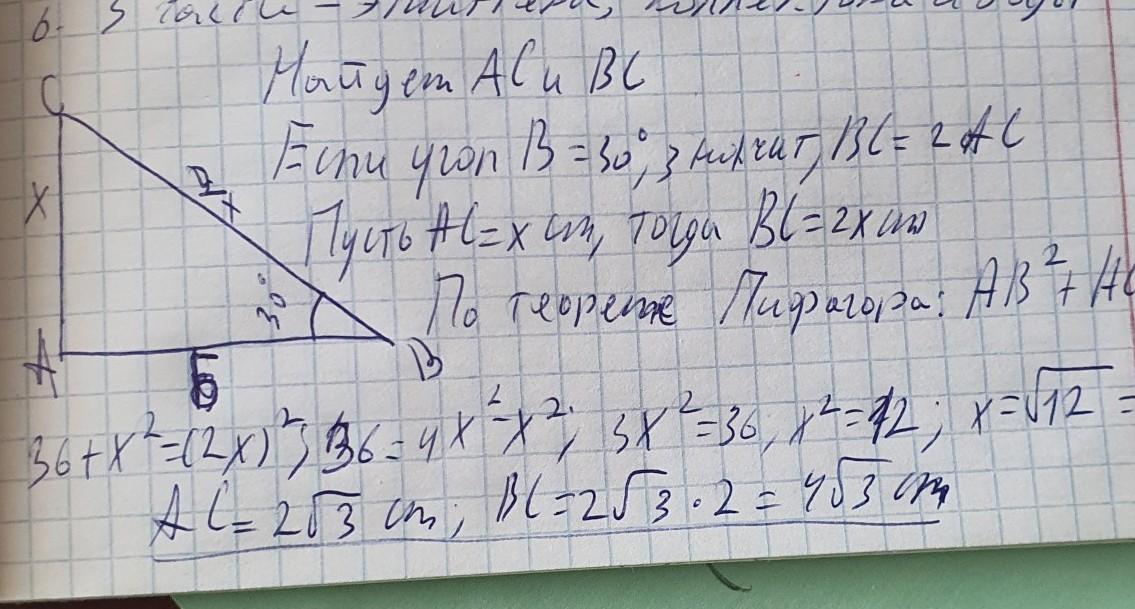 6. 3
Найдем AC и BC
C
Если угол B = 30°, значит, BC = 2AC
2x
x
Пусть AC = x см, тогда BC = 2x см
30°
По теореме Пифагора: AB² + AC
A
6
B
36 + x² = (2x)²; 36 = 4x² - x²; 3x² = 36, x² = 12; x = √12 =
AC = 2√3 см; BC = 2√3 · 2 = 4√3 см